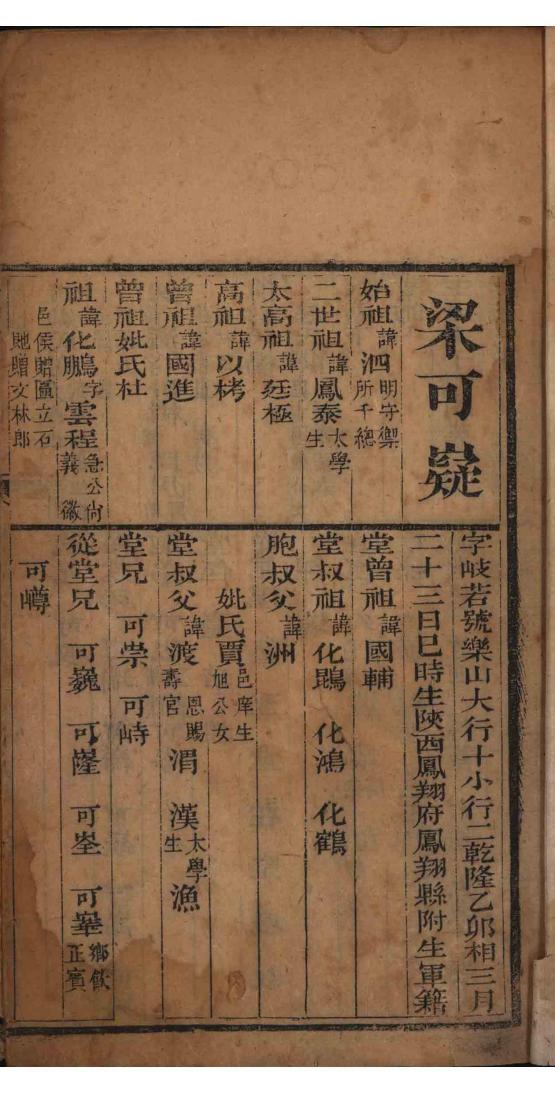 梁可嶷
始祖諱泗明守禦所千總
二世祖諱鳳泰太學生
太高祖諱廷極
高祖諱以栲
曾祖諱國進
曾祖妣氏杜
祖諱化鵬字雲程急公尚義徽
邑侯贈匾立石
貤贈文林郎
字岐若號樂山大行十小行二乾隆乙卯相三月
二十三日巳時生陝西鳳翔府鳳翔縣附生軍籍
堂曾祖諱國輔
堂叔祖諱化鵾 化鴻 化鶴
胞叔父諱洲
妣氏賈邑庠生旭公女
堂叔父諱渡恩賜壽官 湄 漢太學生 漁
堂兄 可崇 可峙
從堂兄 可巍 可㠕 可峑 可嶨鄉飲正賓
可嶟